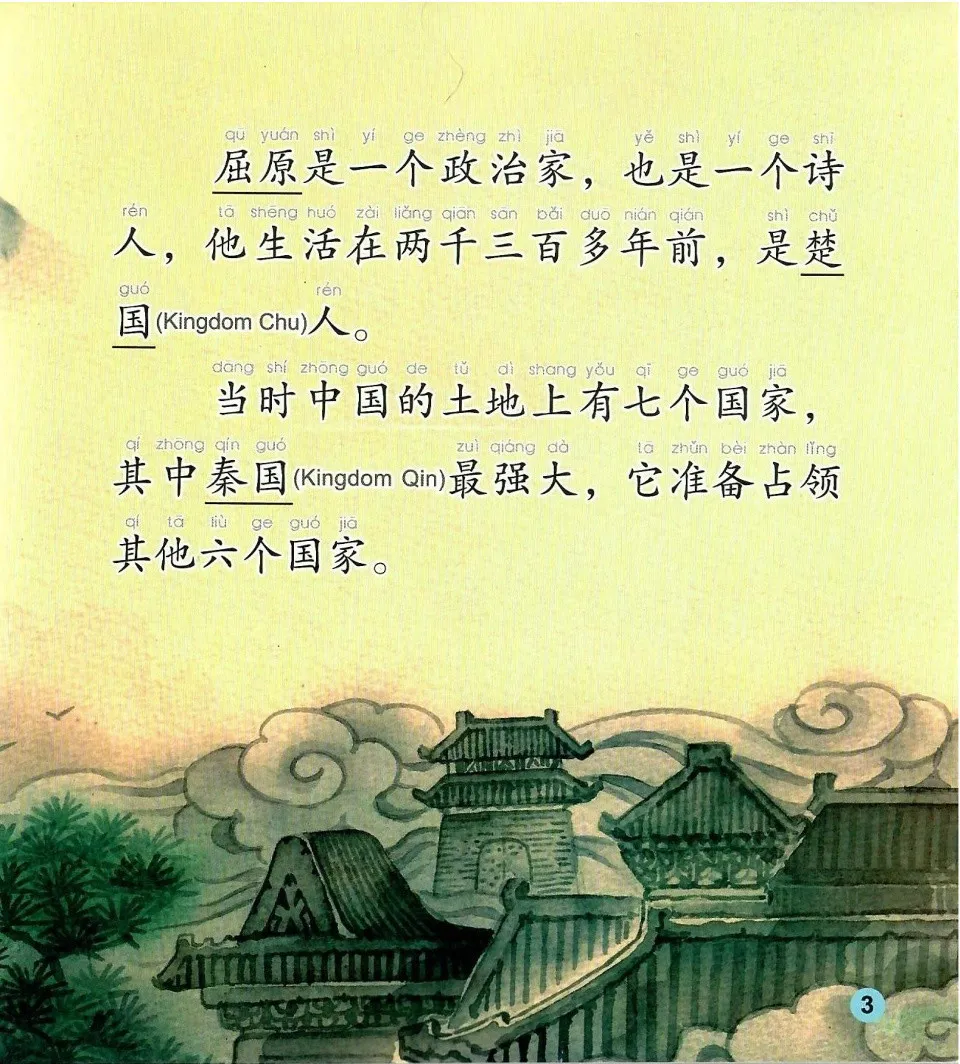 qū yuán shì yí ge zhèng zhì jiā yě shì yí ge shī
屈原是一个政治家，也是一个诗
rén tā shēng huó zài liǎng qiān sān bǎi duō nián qián shì chǔ
人，他生活在两千三百多年前，是楚
guó rén
国(Kingdom Chu)人。
dāng shí zhōng guó de tǔ dì shang yǒu qī ge guó jiā
当时中国的土地上有七个国家，
qí zhōng qín guó zuì qiáng dà tā zhǔn bèi zhàn lǐng
其中秦国(Kingdom Qin)最强大，它准备占领
qí tā liù ge guó jiā
其他六个国家。
3